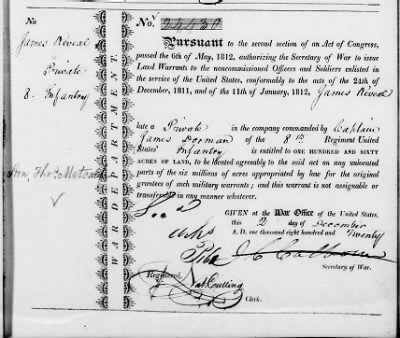 No
James Reveal
Private
8. Infantry
Hon. Thos. Metcalf
WAR DEPARTMENT.
No. 24430
Pursuant to the second section of an Act of Congress,
passed the 6th of May, 1812, authorizing the Secretary of War to issue
Land Warrants to the noncommissioned Officers and Soldiers enlisted in
the service of the United States, conformably to the acts of the 24th of
December, 1811, and of the 11th of January, 1812, James Reveal
late a Private in the company commanded by Captain
James Dorman of the 8th Regiment United
States' Infantry is entitled to ONE HUNDRED AND SIXTY
ACRES OF LAND, to be located agreeably to the said act on any unlocated
parts of the six millions of acres appropriated by law for the original
grantees of such military warrants; and this warrant is not assignable or
transferable in any manner whatever.
GIVEN at the War Office of the United States,
this 2 day of December
A. D. one thousand eight hundred and Twenty
J C Calhoun
Secretary of War.
Registered,
Nat Coulting
Clerk.